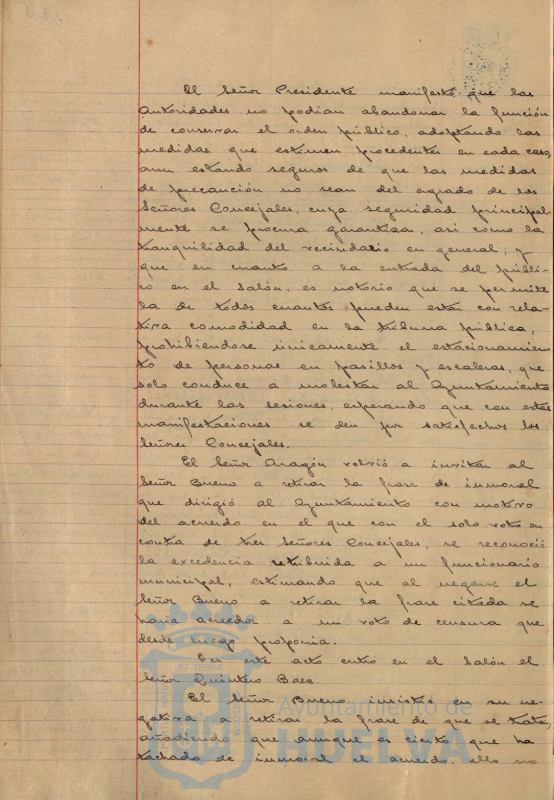 El Señor Presidente manifestó que las
Autoridades no podian abandonar la función
de conservar el orden público, adoptando las
medidas que estimen procedentes en cada caso,
aun estando seguros de que las medidas
de precaución no sean del agrado de los
Señores Concejales, cuya seguridad principal-
mente se procura garantizar, asi como la
tranquilidad del vecindario en general, y
que en cuanto a la entrada del públi-
co en el salón, es notorio que se permite
la de todos cuantos pueden estar con rela-
tiva comodidad en la tribuna pública,
prohibiendose únicamente el estacionamien-
to de personas en pasillos y escaleras, que
solo conduce a molestar al Ayuntamiento
durante las sesiones, esperando que con estas
manifestaciones se den por satisfechos los
Señores Concejales.
El Señor Aragón volvió a invitar al
Señor Bueno a retirar la frase de inmoral
que dirigió al Ayuntamiento con motivo
del acuerdo en el que con el solo voto en
contra de tres Señores Concejales, se reconoció
la excedencia retribuida a un funcionario
municipal, estimando que al negarse el
Señor Bueno a retirar la frase citada se
haria acreedor a un voto de censura que
desde luego proponia.
En este acto entró en el salón el
Señor Quintero Baez.
El Señor Bueno insistió en su ne-
gativa a retirar la frase de que se trata,
añadiendo que aunque es cierto que ha
tachado de inmoral el acuerdo, ello no
Ayuntamiento de
HUELVA